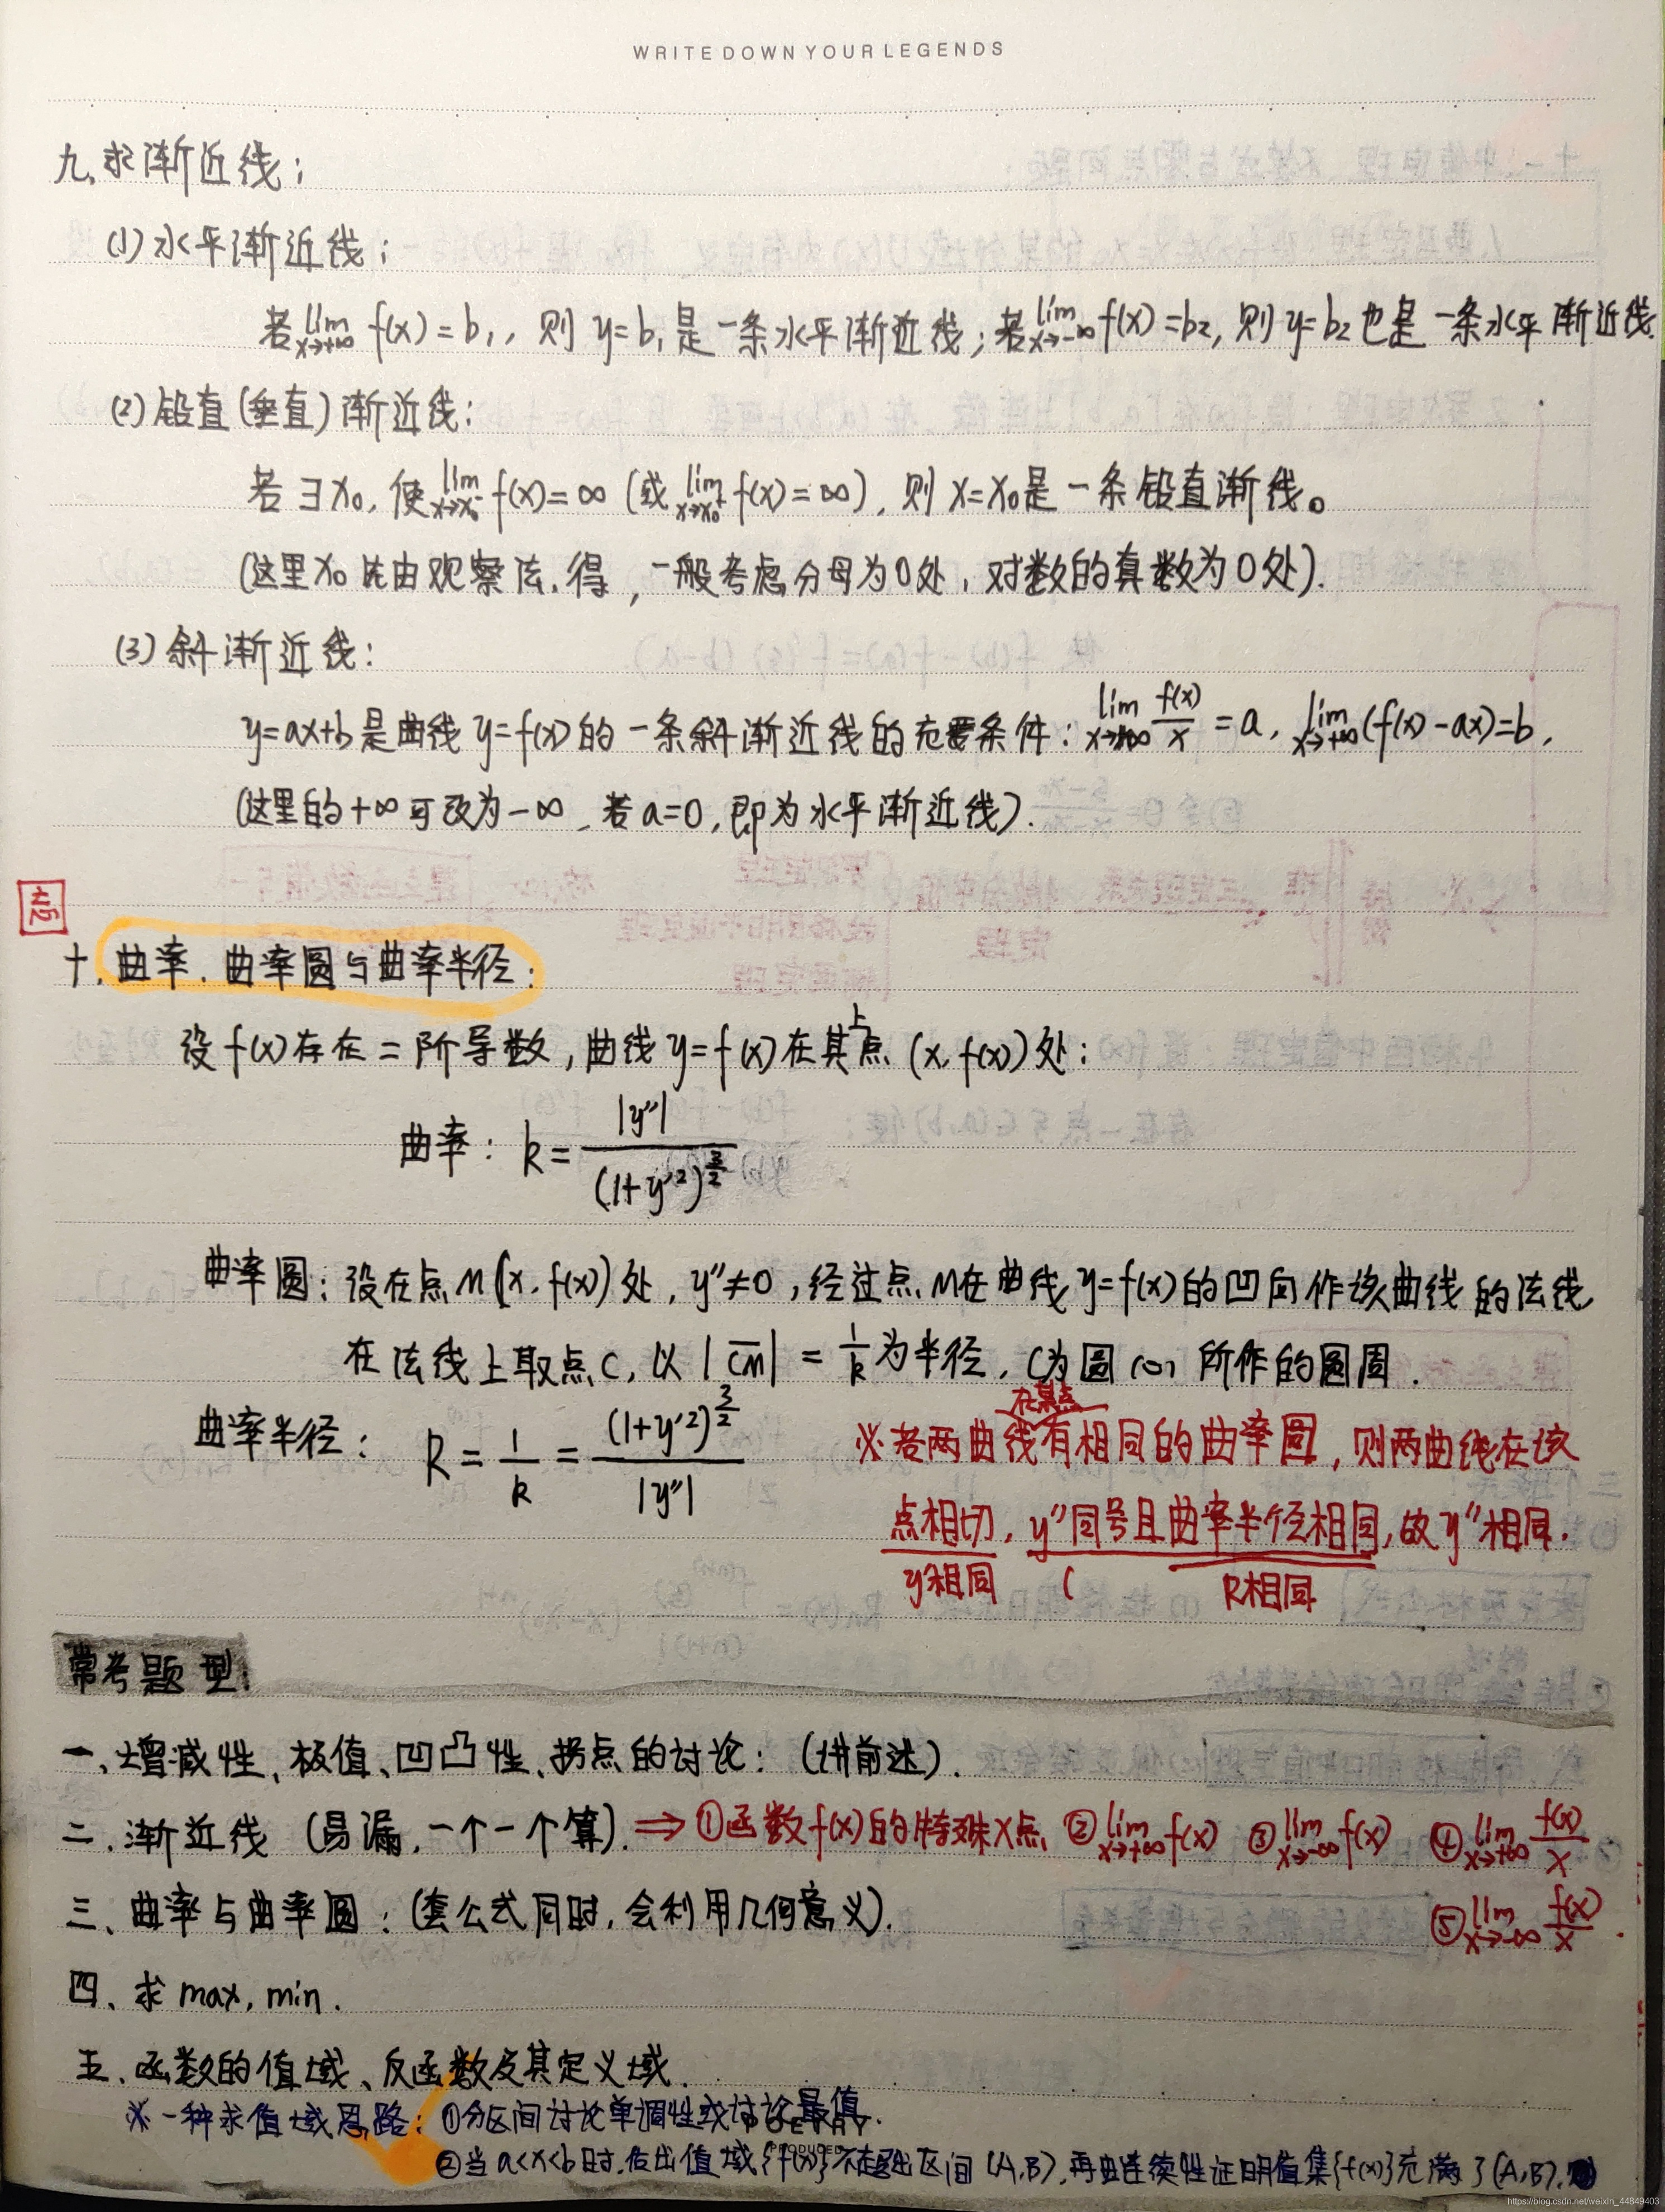 WRITE DOWN YOUR LEGENDS
九、求渐近线：
(1) 水平渐近线：
若 lim x→+∞ f(x)=b₁，则 y=b₁ 是一条水平渐近线；若 lim x→-∞ f(x)=b₂，则 y=b₂ 也是一条水平渐近线.
(2) 铅直(垂直)渐近线：
若∃x₀，使 lim x→x₀⁻ f(x)=∞ (或 lim x→x₀⁺ f(x)=∞)，则 x=x₀是一条铅直渐线。
(这里x₀ 先由观察法得，一般考虑分母为0处，对数的真数为0处).
(3) 斜渐近线：
y=ax+b 是曲线 y=f(x) 的一条斜渐近线的充要条件：lim x→+∞ f(x)/x = a，lim x→+∞ (f(x)-ax)=b，
(这里的+∞可改为-∞，若a=0，即为水平渐近线).
十、曲率、曲率圆与曲率半径：
设f(x)存在二阶导数，曲线 y=f(x) 在其上点 (x, f(x)) 处：
曲率：k = |y''| / (1+y'²)^(3/2)
曲率圆：设在点M(x, f(x))处，y''≠0，经过点M在曲线y=f(x)的凹向作该曲线的法线
在法线上取点C，以|CM| = 1/k 为半径，C为圆心所作的圆周.
曲率半径：R = 1/k = (1+y'²)^(3/2) / |y''|
※若两曲线在某点有相同的曲率圆，则两曲线在该
点相切，y''同号且曲率半径相同，故y''相同.
y'相同 R相同
常考题型：
一、增减性、极值、凹凸性、拐点的讨论：(讲前述).
二、渐近线 (易漏，一个一个算). ⇒ ①函数f(x)的特殊x点 ② lim x→+∞ f(x) ③ lim x→-∞ f(x) ④ lim x→+∞ f(x)/x
⑤ lim x→-∞ f(x)/x
三、曲率与曲率圆：(套公式同时，会利用几何意义).
四、求 max, min.
五、函数的值域、反函数及其定义域.
※一种求值域思路：①分区间讨论单调性或讨论最值.
②当a<x<b时，估出值域{f(x)}不超出区间(A,B)，再由连续性证明值集{f(x)}充满了(A,B).
PRODUCED
https://blog.csdn.net/weixin_44849403